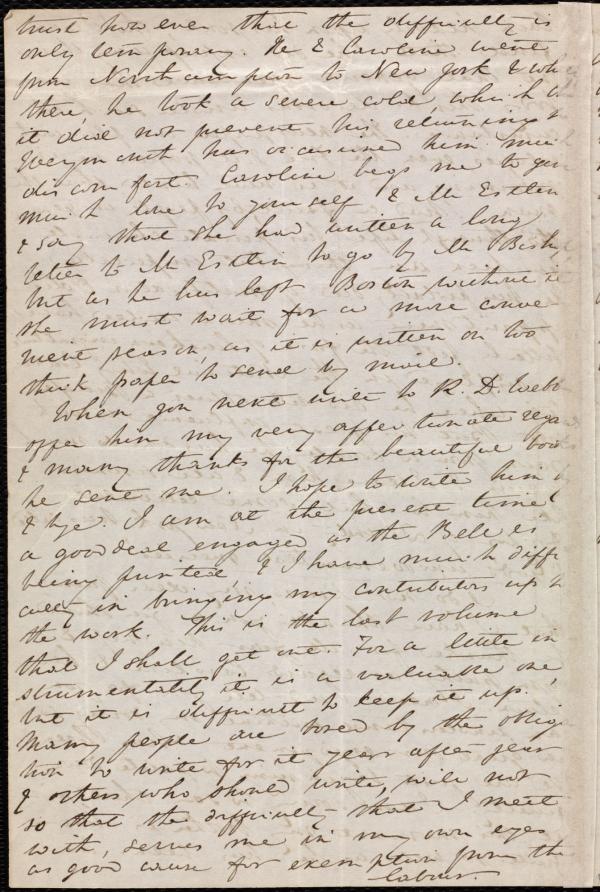 trust however that the difficulty is
only temporary. He & Caroline went
from Northampton to New York & wh
there, he took a severe cold, which
it did not prevent his returning
Weymouth has occasioned him mu
discomfort. Caroline begs me to give
much love to yourself & Mr Estlin
& say that she had written a long
letter to Mr Estlin to go by Mr Bish
but as he has left Boston without it
she must wait for a more conve
nient season, as it is written on too
thick paper to send by mail.
When you next write to R. D. Webb
offer him my very affectionate rega
& many thanks for the beautiful book
he sent me. I hope to write him b
& bye. I am at the present time
a good deal engaged as the Bell is
being printed, & I have much diffi
culty in bringing my contributors up t
the work. This is the last volume
that I shall get out. For a little in
strumentality it is a valuable one
but it is difficult to keep it up.
Many people are bored by the obliga
tion to write for it year after year
& others who should write, will not
so that the difficulty that I meet
with, serves me in my own eyes
as good cause for exemption from the
labour.